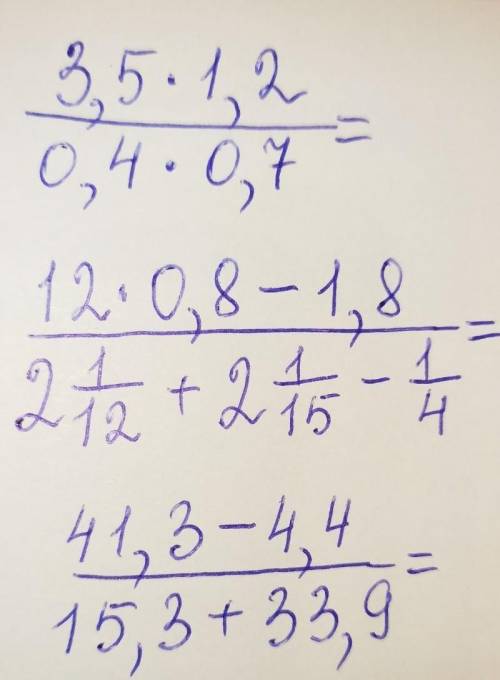 3,5 · 1,2
0,4 · 0,7 =
12 · 0,8 − 1,8
2 1/12 + 2 1/15 − 1/4 =
41,3 − 4,4
15,3 + 33,9 =